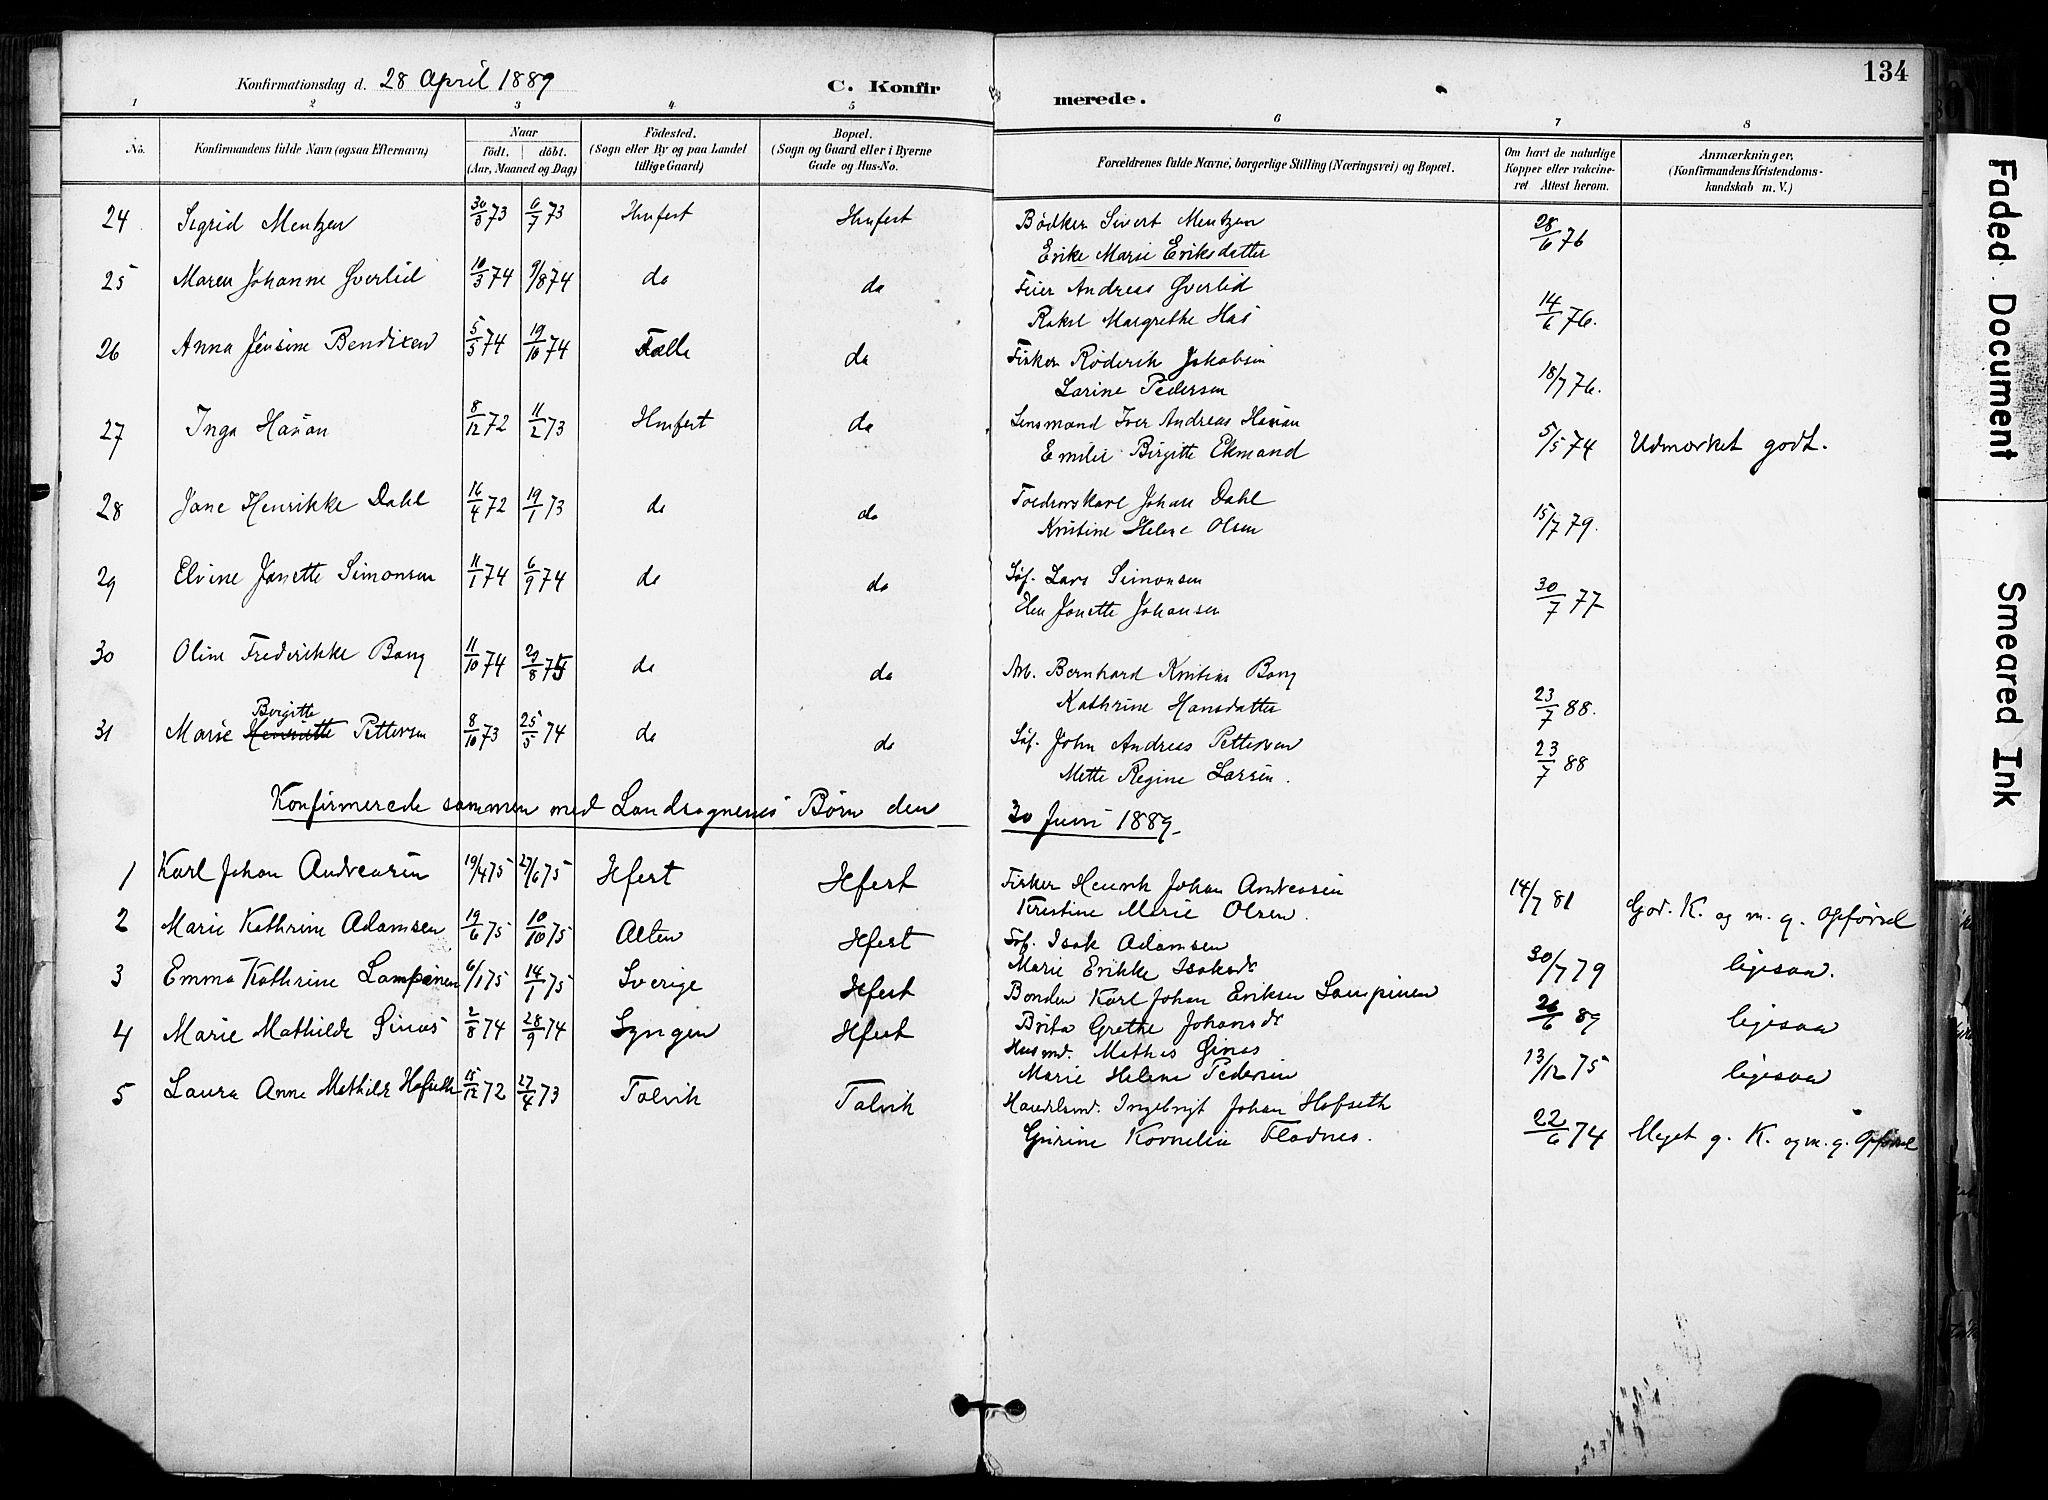 134
Konfirmationsdag d. 28 April 1889
C. Konfirmerede.
1 2 3 4 5 6 7 8
No.
Konfirmandens fulde Navn (ogsaa Efternavn)
Naar
födt. döbt.
(Aar, Maaned og Dag)
Födested.
(Sogn eller By og paa Landet
tillige Gaard)
Bopæl.
(Sogn og Gaard eller i Byerne
Gade og Hus-No.
Forældrenes fulde Navne, borgerlige Stilling (Næringsvei) og Bopæl.
Om havt de naturlige
Kopper eller vakcine-
ret Attest herom.
Anmærkninger.
(Konfirmandens Kristendoms-
kundskab m. V.)
24 Sigrid Mentzen 30/3 73 6/7 73 Hmfest Hmfest Bödker Sivert Mentzen 28/6 76
Erike Marie Eriksdatter
25 Maren Johanne Överlid 10/3 74 9/8 74 do do Feier Andreas Överlid 14/6 76.
Rakel Margrethe
26 Anna Jensine Bendixen 5/5 74 19/10 74 do Fisker Röderik Jakobsen 18/7 76.
Larine Pedersen
27 Inga Hauan 8/12 72 11/2 73 Hmfest do Lensmand Iver Andreas Hauan 5/5 74 Udmærket godt.
Emilie Birgitte Ekmand
28 Jane Henrikke Dahl 16/4 72 19/1 73 do do Johan Dahl 15/7 79.
Kristine Helene Olsen
29 Elvine Janette Simonsen 11/1 74 6/9 74 do do Söf. Lars Simonsen 30/7 77
Elen Janette Johansen
30 Oline Frederikke Bang 11/10 74 29/8 75 do do Arb. Bernhard Kristian Bang 23/7 88.
Kathrine Hansdatter
31 Marie Henriette Birgitte Pettersen 8/10 73 25/5 74 do do Söf. John Andreas Pettersen 23/7 88
Mette Regine Larsen.
Konfirmerede sammen med Landsognenes Börn den 30 Juni 1889.
1 Karl Johan Andreasen 19/4 75 27/6 75 Hfest Hfest Fisker Henrik Johan Andreasen 14/7 81 God. K. og m. g. Opförsel
Kristine Marie Olsen.
2 Marie Kathrine Adamsen 19/6 75 10/10 75 Alten Hfest Söf. Isak Adamsen 30/7 79 ligesaa.
Marie Erikke Isaksdr
3 Emma Kathrine Lampinen 6/1 75 14/1 75 Sverige Hfest Bonden Karl Johan Eriksen Lampinen 26/6 89 ligesaa
Brita Grethe Johansdr
4 Marie Mathilde Ginas 2/8 74 28/9 74 Lyngen Hfest Husmd. Mathis Ginas 13/12 75 ligesaa
Marie Helene Pedersen
5 Laura Anne Mathilde Hofseth 15/12 72 27/4 73 Talvik Talvik Handelsmd. Ingebrigt Johan Hofseth 22/6 74 Meget g. K. og m. g. Opförsel
Gurine Kornelia Fladnes.
Faded Document
Smeared Ink